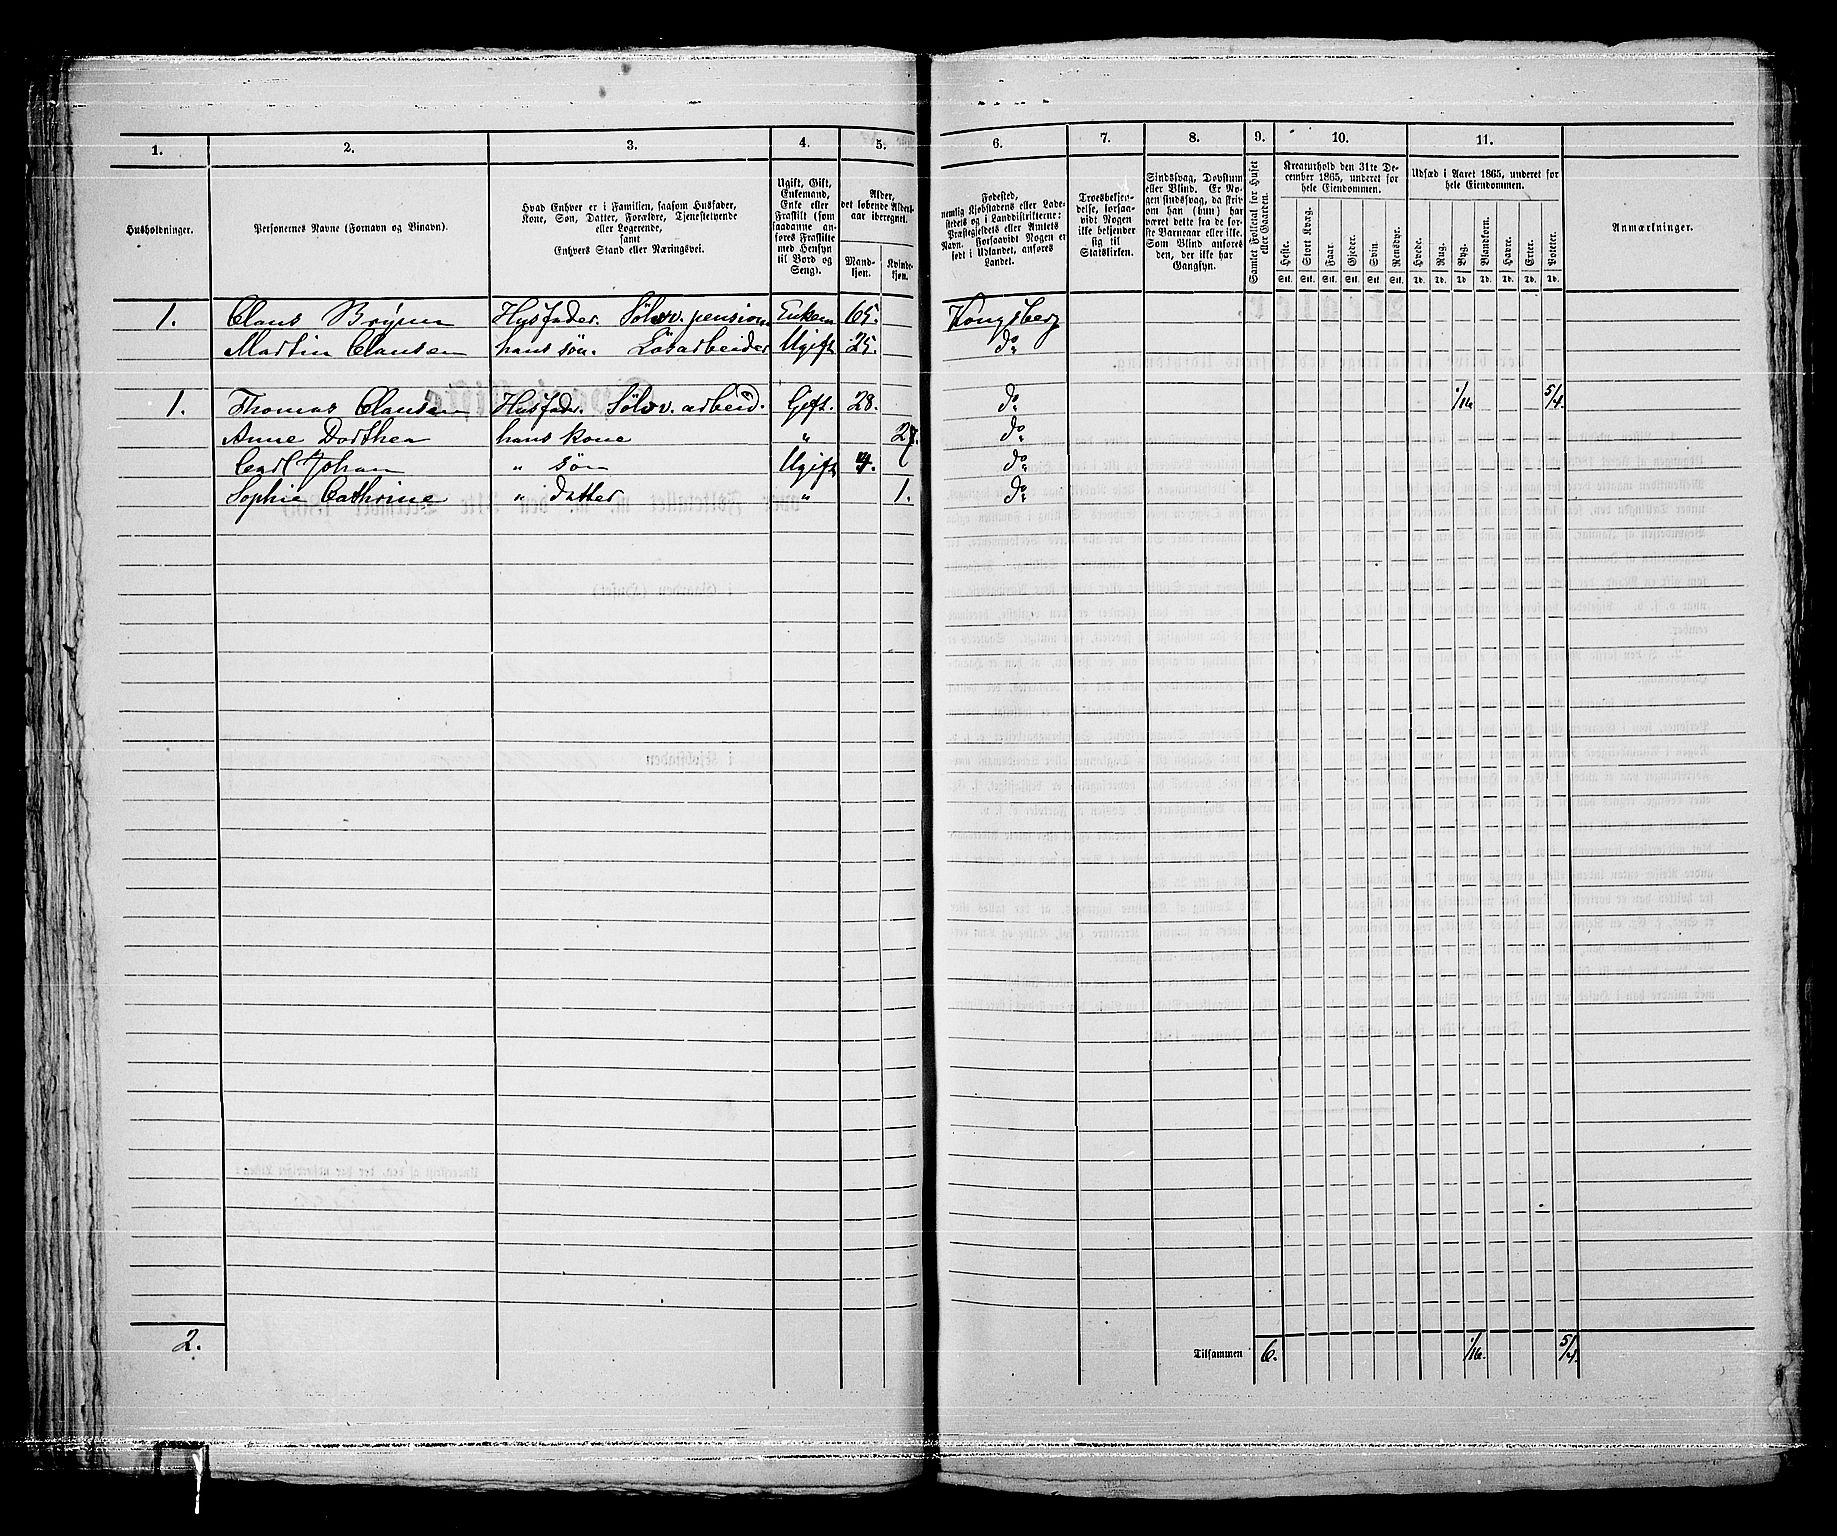 1. 2. 3. 4. 5. 6. 7. 8. 9. 10. 11.
Husholdninger.
Personernes Navne (Fornavn og Binavn).
Hvad Enhver er i Familien, saasom Husfader,
Kone, Søn, Datter, Forældre, Tjenestetyende
eller Logerende,
samt
Enhvers Stand eller Næringsvei.
Ugift, Gift,
Enkemand,
Enke eller
Fraskilt (som
saadanne an-
føres Fraskilte
med Hensyn
til Bord og
Seng).
Alder,
det løbende Alders-
aar iberegnet.
Mand-
kjøn.
Kvinde-
kjøn.
Fødested,
nemlig Kjøbstadens eller Lade-
stedets og i Landdistrikterne:
Præstegjeldets eller Amtets
Navn. Forsaavidt Nogen er
født i Udlandet, anføres
Landet.
Troesbekjen-
delse, forsaa-
vidt Nogen
ikke bekjender
sig til
Statskirken.
Sindssvag, Døvstum
eller Blind. Er No-
gen sindssvag, da skriv
om han (hun) har
været dette fra de før-
ste Barneaar eller ikke.
Som Blind anføres
den, der ikke har
Gangsyn.
Samlet Folketal for Huset
eller Gaarden.
Kreaturhold den 31te De-
cember 1865, underet for
hele Eiendommen.
Heste. Stort Kvæg. Faar. Gjeder. Svin. Rensdyr.
Stk. Stk. Stk. Stk. Stk. Stk.
Udsæd i Aaret 1865, underet for
hele Eiendommen.
Hvede. Rug. Byg. Blandkorn. Havre. Erter. Poteter.
Td. Td. Td. Td. Td. Td. Td.
Anmærkninger.
1. Claus Brynn Husfader. Sölvv. pension Enkem 65. Kongsberg
Martin Clausen hans søn. Lösarbeider Ugift 25. do
1. Thomas Clausen Husfader. Sölvv. arbeid. Gift. 28. do 1/16 5/4
Anne Dorthea hans Kone " 27. do
Carl Johan " søn Ugift 4. do
Sophie Cathrine " datter " 1. do
2. Tilsammen 6. 1/16. 5/4.